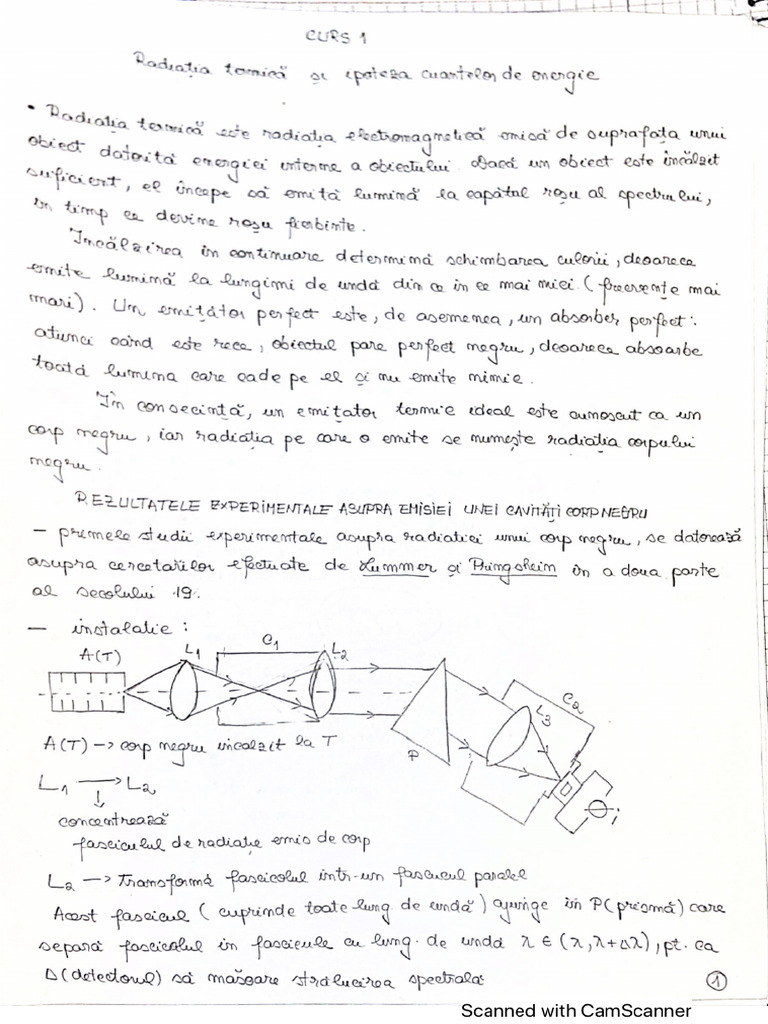 CURS 1
Radiația termică și ipoteza cuantelor de energie
• Radiația termică este radiația electromagnetică emisă de suprafața unui
obiect datorită energiei interne a obiectului. Dacă un obiect este încălzit
suficient, el începe să emită lumină la capătul roșu al spectrului,
în timp ce devine roșu fierbinte.
Încălzirea în continuare determină schimbarea culorii, deoarece
emite lumină la lungimi de undă din ce în ce mai mici. (frecvențe mai
mari). Un emițător perfect este, de asemenea, un absorber perfect:
atunci când este rece, obiectul pare perfect negru, deoarece absoarbe
toată lumina care cade pe el și nu emite nimic.
În consecință, un emițător termic ideal este cunoscut ca un
corp negru, iar radiația pe care o emite se numește radiația corpului
negru.
REZULTATELE EXPERIMENTALE ASUPRA EMISIEI UNEI CAVITĂȚI CORP NEGRU
— primele studii experimentale asupra radiației unui corp negru, se datorează
asupra cercetărilor efectuate de Lummer și Pringsheim în a doua parte
al secolului 19.
— instalație:
A(T) L1 C1 L2
P L3 C2 i
A(T) -> corp negru încălzit la T
L1 -> L2
↓
concentrează
fasciculul de radiație emis de corp
L2 -> Transformă fascicolul într-un fascicul paralel
Acest fascicul (cuprinde toate lung. de undă) ajunge în P(prismă) care
separă fascicolul în fascicule cu lung. de undă λ ∈ (λ, λ+Δλ), pt. ca
D(detectorul) să măsoare strălucirea spectrală
1
Scanned with CamScanner